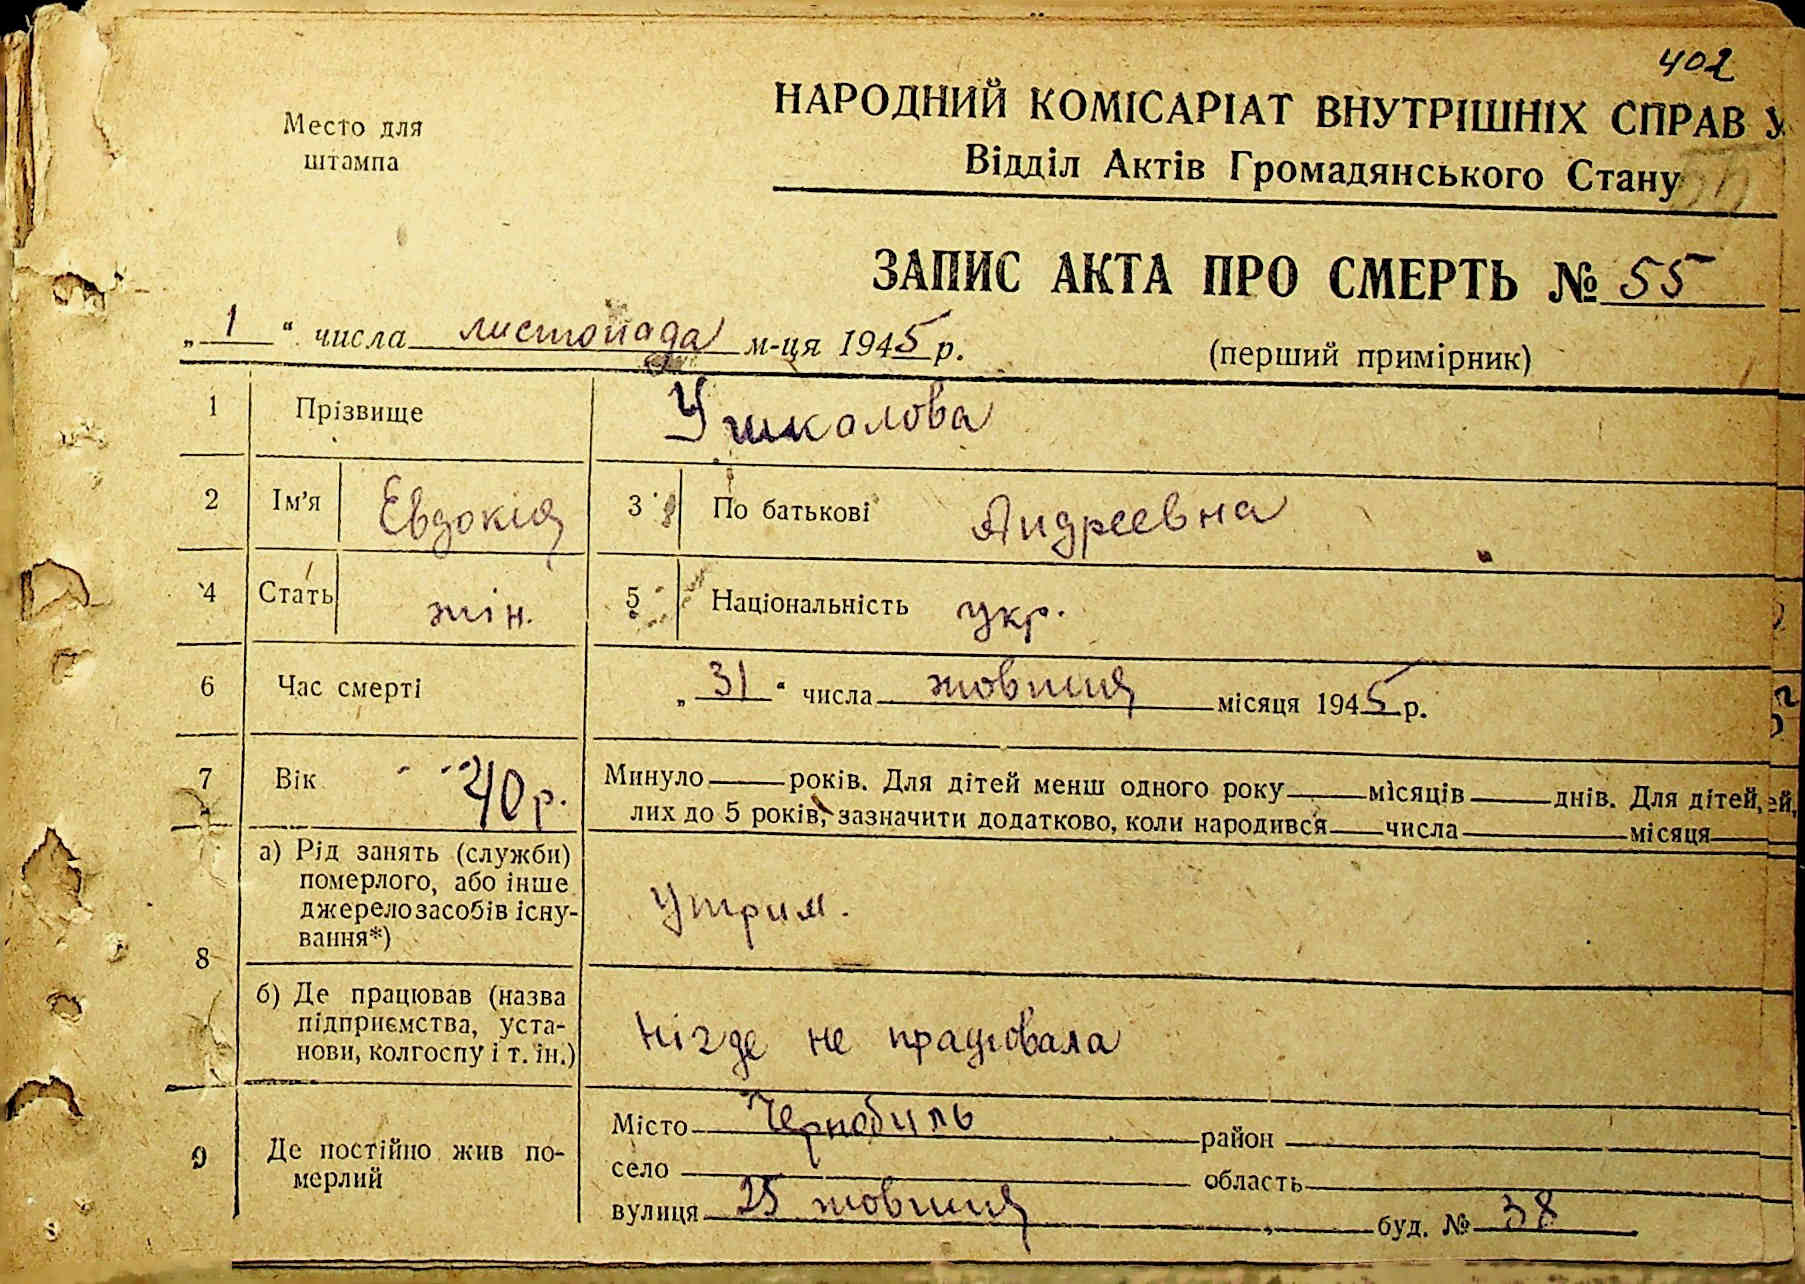 402
Место для
штампа
НАРОДНИЙ КОМІСАРІАТ ВНУТРІШНІХ СПРАВ У
Відділ Актів Громадянського Стану
ЗАПИС АКТА ПРО СМЕРТЬ № 55
„ 1 “ числа листопада м-ця 1945 р.
(перший примірник)
1 Прізвище Ушкалова
2 Ім'я Евдокия 3 По батькові Андреевна
4 Стать жін. 5 Національність укр.
6 Час смерті „ 31 “ числа жовтня місяця 1945 р.
7 Вік 40 р. Минуло років. Для дітей менш одного року місяців днів. Для дітей,
лих до 5 років, зазначити додатково, коли народився числа місяця
8 а) Рід занять (служби)
померлого, або інше
джерело засобів існу-
вання*)
Утрим.
б) Де працював (назва
підприємства, уста-
нови, колгоспу і т. ін.)
нігде не працювала
9 Де постійно жив по-
мерлий
Місто Чернобиль район
село область
вулиця 25 жовтня буд. № 38